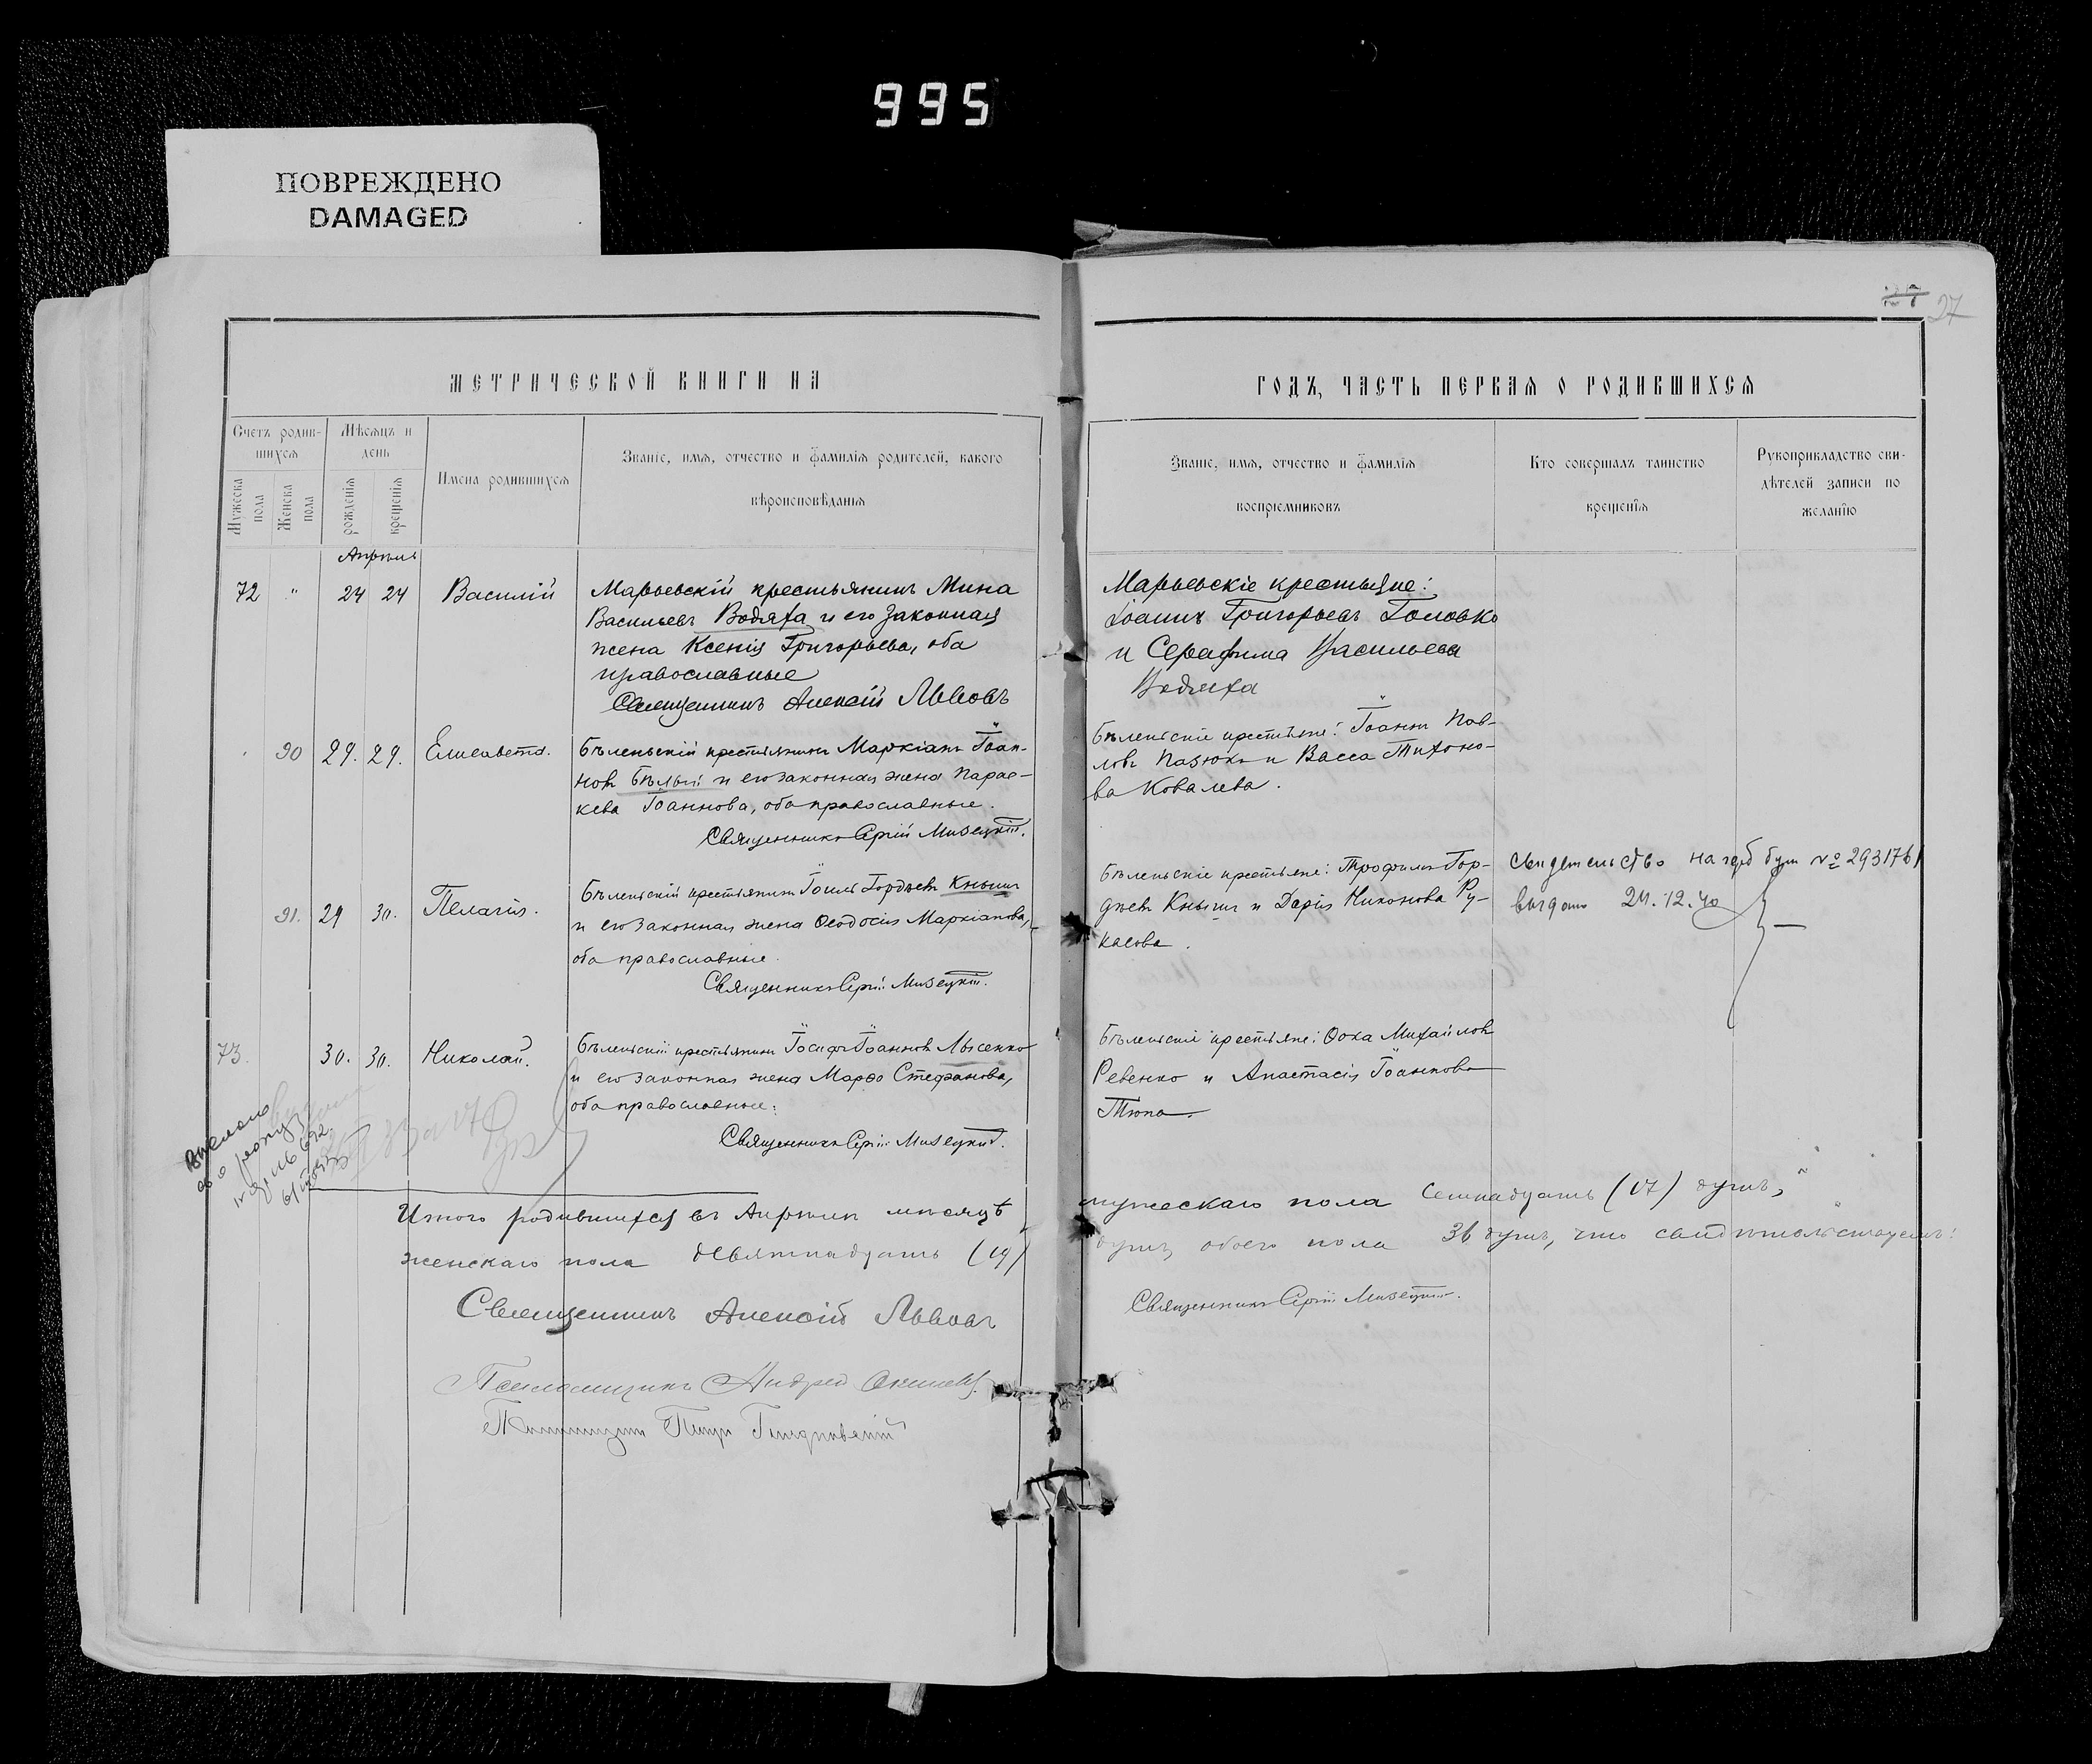 995
ПОВРЕЖДЕНО
DAMAGED
27
МЕТРИЧЕСКОЙ КНИГИ НА
ГОДЪ, ЧАСТЬ ПЕРВАЯ О РОДИВШИХСЯ
Счетъ родив-
шихся
Мѣсяцъ и
день
Мужеска
пола
Женска
пола
рожденія
крещенія
Имена родившихся
Званіе, имя, отчество и фамилія родителей, какого
вѣроисповѣданія
Званіе, имя, отчество и фамилія
воспріемниковъ
Кто совершалъ таинство
крещенія
Рукоприкладство сви-
дѣтелей записи по
желанію
Апрѣль
72 " 24 24 Василій
Марьевскій крестьянинъ Мина
Васильевъ Водяха и его законная
жена Ксенія Григорьева, оба
православные
Священникъ Алексій Львовъ
Марьевскіе крестьяне:
Іоаннъ Григорьевъ Головко
и Серафима Васильева
Водяха
90 29. 29. Елисавета.
Бѣленьскій крестьянинъ Маркіанъ Іоан-
новъ Бѣлый и его законная жена Парас-
кева Іоаннова, оба православные.
Священникъ Сергій Мизецкій.
Бѣленьскіе крестьяне: Іоаннъ Пав-
ловъ Пазюкъ и Васса Тихоно-
ва Ковалева.
91. 29 30. Пелагія.
Бѣленьскій крестьянинъ Іоиль Гордѣевъ Кнышъ
и его законная жена Ѳеодосія Маркіанова,
оба православные.
Священникъ Сергій Мизецкій.
Бѣленьскіе крестьяне: Трофимъ Гор-
дѣевъ Кнышъ и Дарія Никонова Ру-
касова.
Свидетельство на герб бум № 293176
выдано 24.12.40
73. 30. 30. Николай.
Бѣленьскій крестьянинъ Іосифъ Іоанновъ Лысенко
и его законная жена Марѳа Стефанова,
оба православные.
Священникъ Сергій Мизецкій.
Бѣленьскіе крестьяне: Ѳока Михайловъ
Ревенко и Анастасія Іоаннова
Тюпа.
Итого родившихся въ Апрѣлѣ мѣсяцѣ
мужескаго пола семнадцать (17) душъ,
женскаго пола девятнадцать (19)
душъ, обоего пола 36 душъ, что свидѣтельствуемъ:
Священникъ Алексій Львовъ
Священникъ Сергій Мизецкій.
Псаломщикъ Андрей
Псаломщикъ Петръ